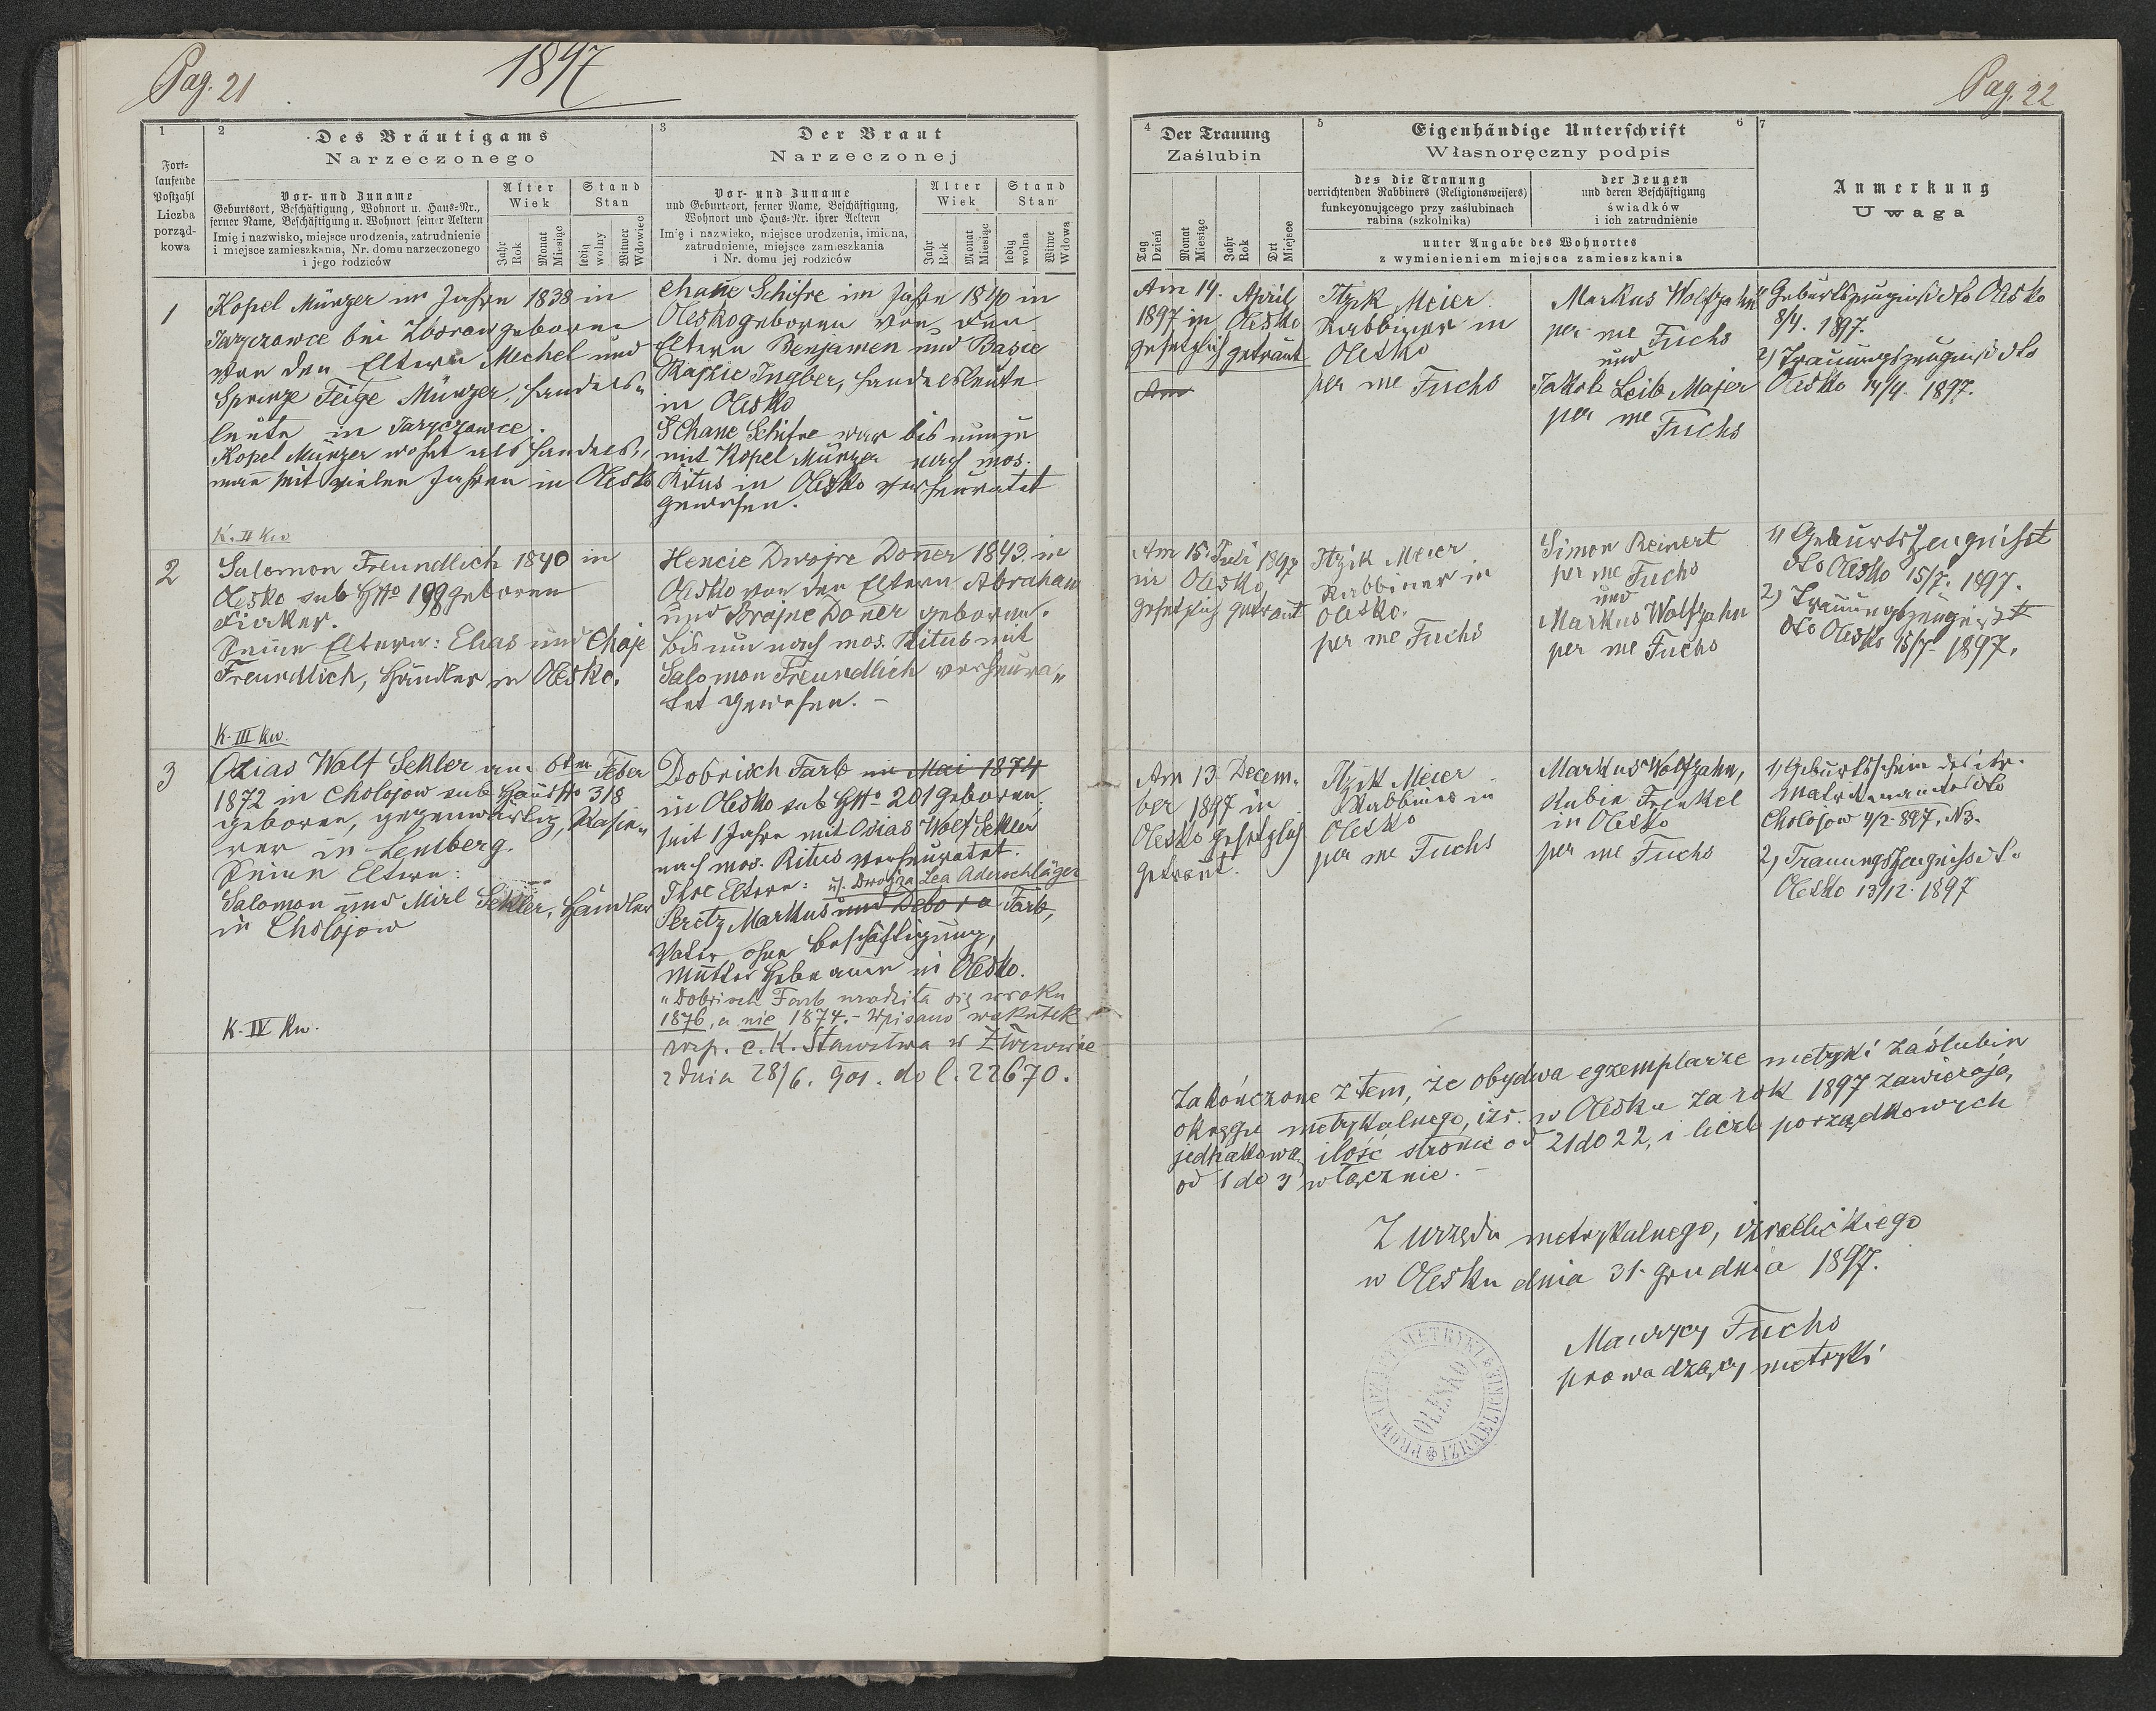 Pag. 21
1897
1
Fort-
laufende
Postzahl
Liczba
porząd-
kowa
2
Des Bräutigams
Narzeczonego
Vor- und Zuname
Geburtsort, Beschäftigung, Wohnort u. Haus-Nr.,
ferner Name, Beschäftigung u. Wohnort seiner Aeltern
Imię i nazwisko, miejsce urodzenia, zatrudnienie
i miejsce zamieszkania, Nr. domu narzeczonego
i jego rodziców
Alter
Wiek
Jahr
Rok
Monat
Miesiąc
Stand
Stan
ledig
wolny
Witwer
Wdowiec
3
Der Braut
Narzeczonej
Vor- und Zuname
und Geburtsort, ferner Name, Beschäftigung,
Wohnort und Haus-Nr. ihrer Aeltern
Imię i nazwisko, miejsce urodzenia, imiona,
zatrudnienie, miejsce zamieszkania
i Nr. domu jej rodziców
Alter
Wiek
Jahr
Rok
Monat
Miesiąc
Stand
Stan
ledig
wolna
Witwe
Wdowa
1
Kopel Münzer im Jahre 1838 in
Jarczowce bei Zborow geboren
von den Eltern Mechel und
Sprinze Feige Münzer, Handels„
leute in Jarczowce.
Kopel Münzer wohnt als Handels„
man seit vielen Jahren in Olesko
Chane Schifre im Jahre 1840 in
Olesko geboren von den
Eltern Benjamen und Basie
Raszie Ingber, Handelsleute
in Olesko
Chane Schifre war bis nunzu
mit Kopel Münzer nach mos.
Ritus in Olesko verheuratet
gewesen.
K. II Kw
2
Salomon Freundlich 1840 in
Olesko sub HNo 199 geboren
Fiaker.
Seine Eltern: Elias und Chaje
Freundlich, Händler in Olesko.
Hencie Dwojre Doner 1843 in
Olesko von den Eltern Abraham
und Brajne Doner geboren.
Bis nun nach mos. Ritus mit
Salomon Freundlich verheura„
tet gewesen. –
K. III Kw.
3
Osias Wolf Sekler am 6ten Feber
1872 in Cholojow sub Haus No 318
geboren, gegenwärtig, Kasie„
rer in Lemberg.
Seine Eltern:
Salomon und Mirl Sekler, Händler
in Cholojow
Dobrisch Farb im Mai 1874
in Olesko sub HNo 201 geboren,
seit 1 Jahre mit Osias Wolf Sekler
nach mos. Ritus verheuratet.
Ihre Eltern: u. Dwojra Lea Aderschläger
Peretz Markus und Debora Farb,
Vater ohne Beschäftigung,
Mutter Hebeamme in Olesko.
„Dobrisch Farb urodziła się w roku
1876, a nie 1874. – Wpisano wskutek
rozp. c. k. Starostwa w Złoczowie
z dnia 28/6. 901. do l. 22670.
K. IV Kw.
Pag. 22
4
Der Trauung
Zaślubin
Tag
Dzień
Monat
Miesiąc
Jahr
Rok
Ort
Miejsce
5
Eigenhändige Unterschrift
6
Własnoręczny podpis
des die Trauung
verrichtenden Rabbiners (Religionsweisers)
funkcyonującego przy zaślubinach
rabina (szkolnika)
der Zeugen
und deren Beschäftigung
świadków
i ich zatrudnienie
unter Angabe des Wohnortes
z wymienieniem miejsca zamieszkania
7
Anmerkung
Uwaga
Am 14. April
1897 in Olesko
gesetzlich getraut
Am
Itzik Meier
Rabbiner in
Olesko
per me Fuchs
Markus Wolfzahn
per me Fuchs
und
Jakob Leib Majer
per me
Fuchs
Geburtszeugniß dto Olesko
8/4. 1897.
2) Trauungszeugniß dto
Olesko 14/4. 1897.
Am 15. Juli 1897
in Olesko,
gesetzlich getraut
Itzik Meier
Rabbiner in
Olesko.
per me Fuchs
Simon Reinert
per me Fuchs
und
Markus Wolfzahn
per me Fuchs
1) Geburtszeugnißt
dto Olesko 15/7. 1897.
2) Trauungszeugnißt
dto Olesko 15/7 1897.
Am 13. Decem„
ber 1897 in
Olesko gesetzlich
getraut.
Itzik Meier
Rabbiner in
Olesko
per me Fuchs
Markus Wolfzahn,
Rubin Frenkel
in Olesko
per me Fuchs
1) Geburtsschein des isr.
Matrikenamtes dto
Cholojow 4/2. 897, N 3.
2) Trauungszeugniss dto
Olesko 13/12. 1897
Zakończone z tem, że obydwa egzemplarze metryki zaślubin
okręgu metrykalnego, izr. w Olesku za rok 1897 zawierają,
jednakową ilość stronic od 21 do 22, i liczb porządkowych
od 1 do 3 włącznie. –
Z urzędu metrykalnego, izraelickiego
w Olesku dnia 31. grudnia 1897.
Maurycy Fuchs
prowadzący metryki
PROWADZĄCY METRYKI IZRAELICKIE
OLESKO